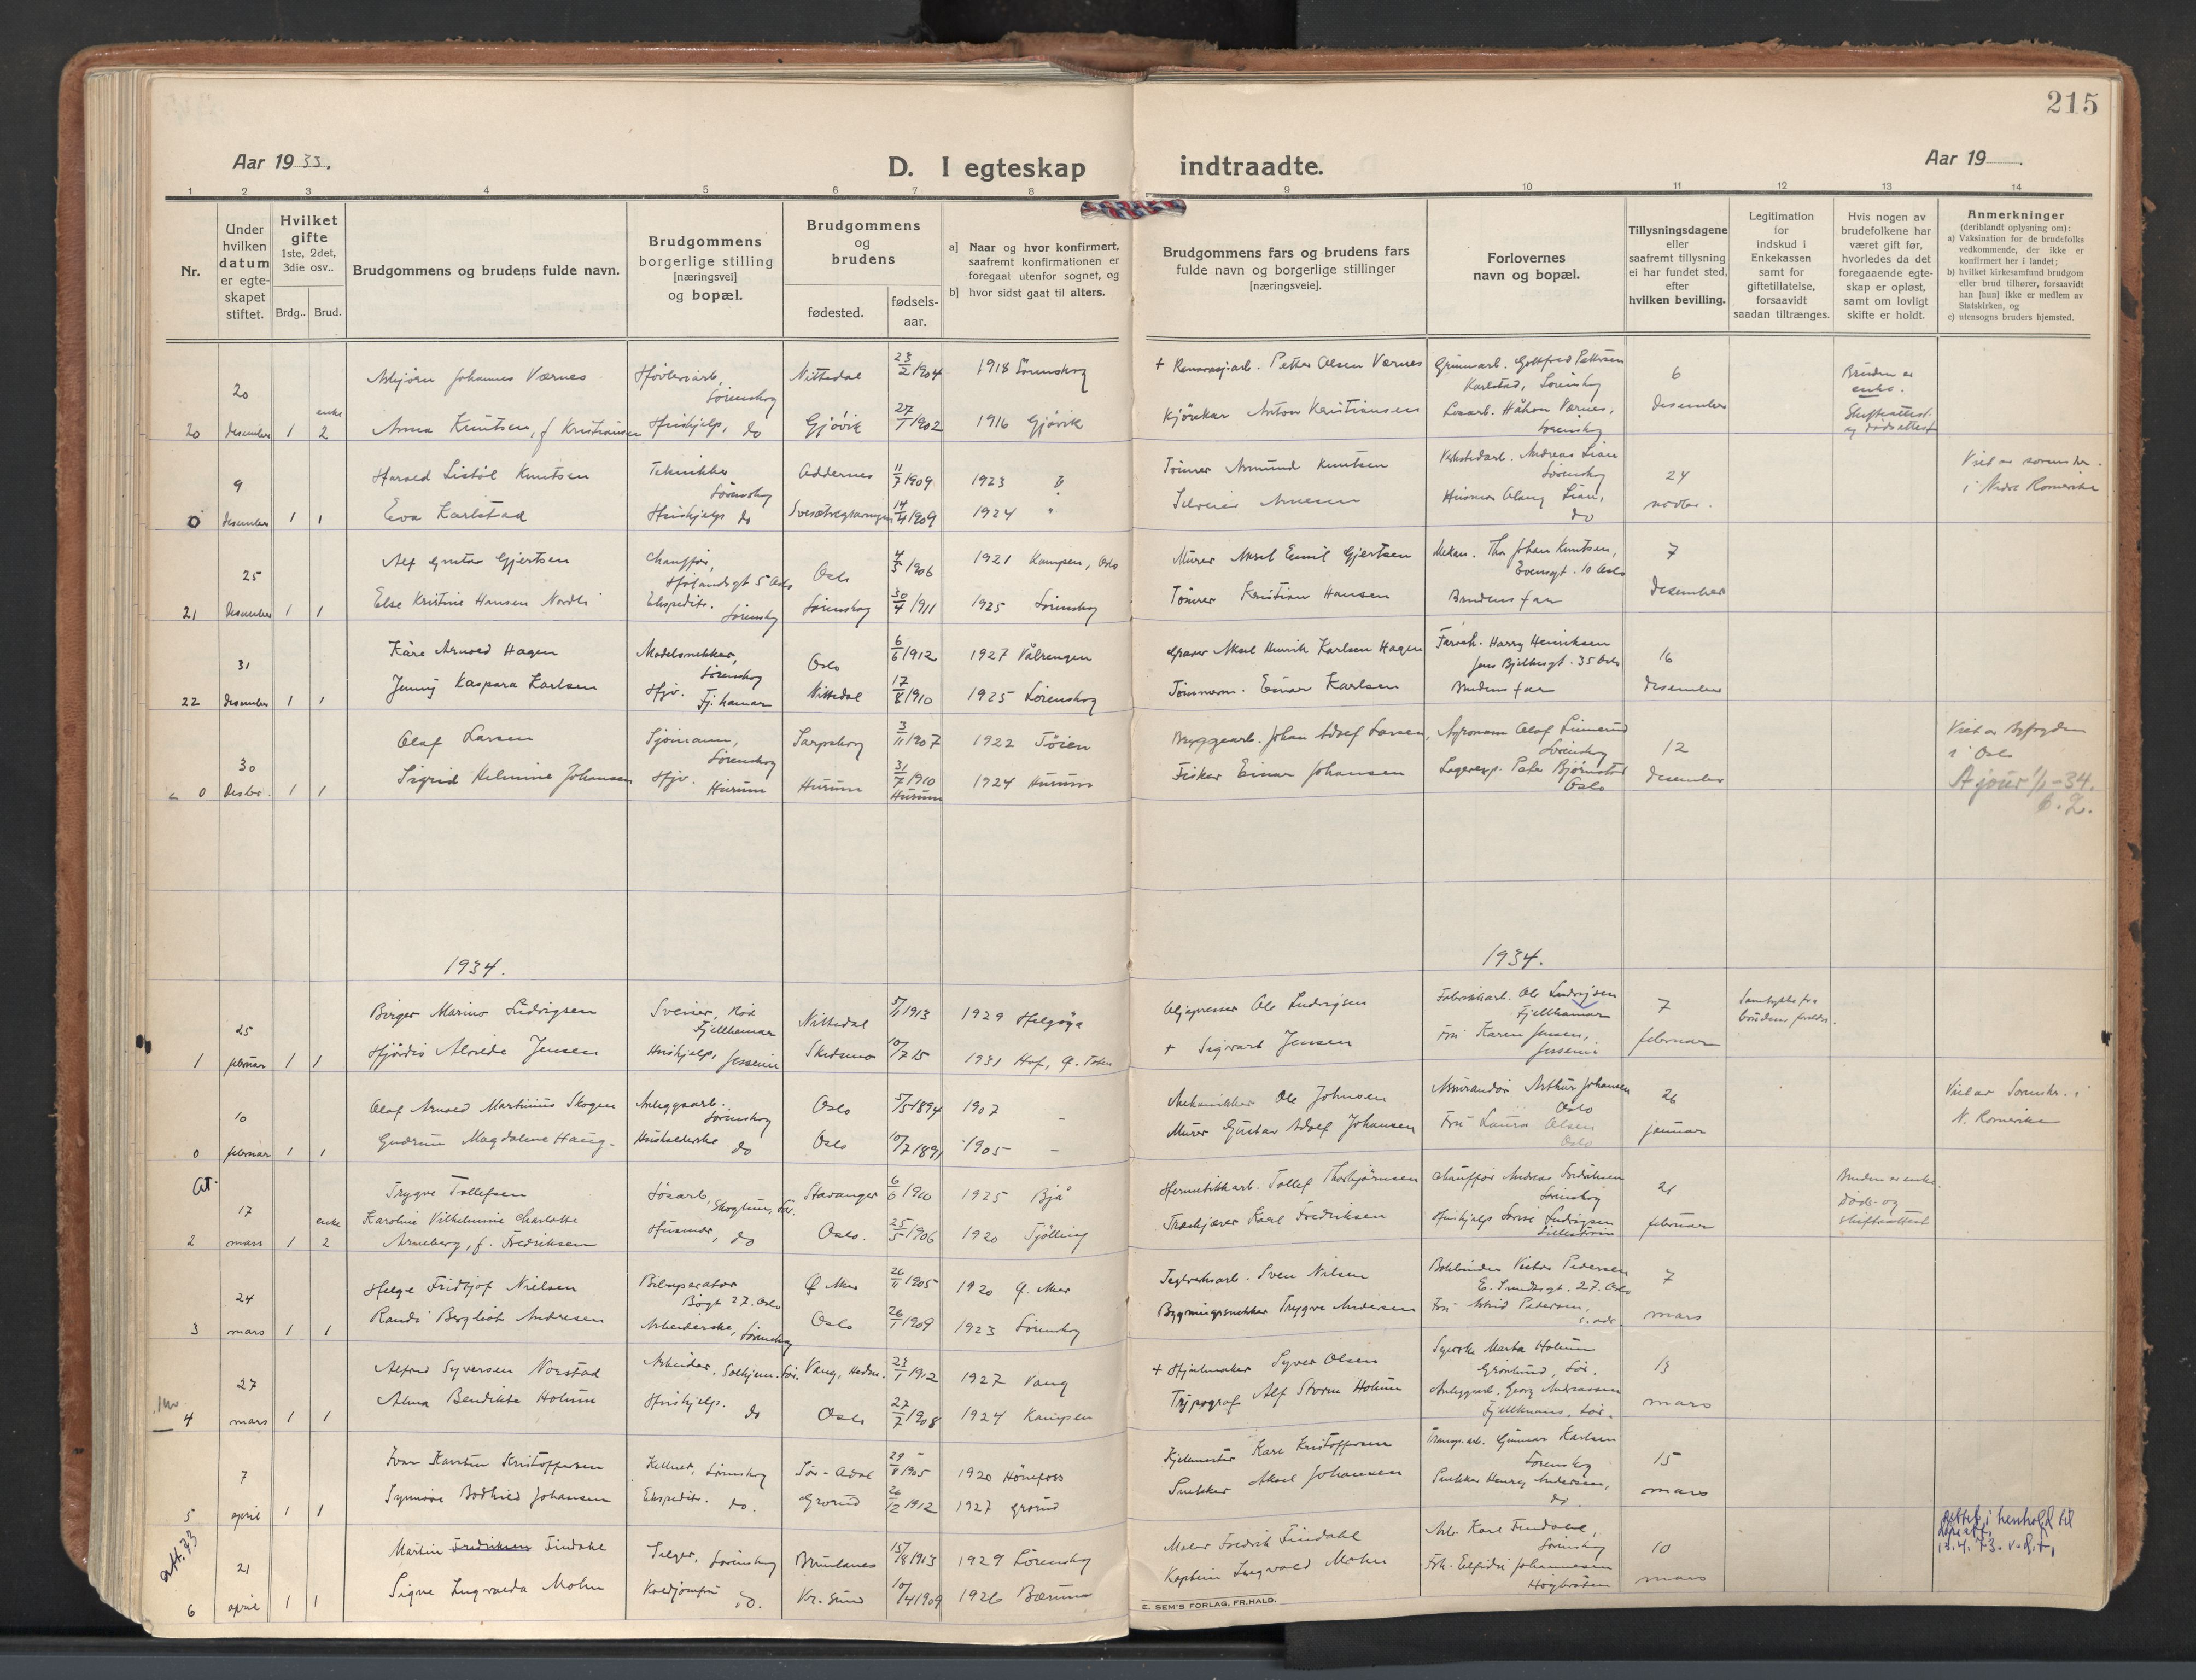 215
Aar 1933.
D. I egteskap indtraadte.
Aar 19
1 2 3 4 5 6 7 8 9 10 11 12 13 14
Nr.
Under hvilken datum er egteskapet stiftet.
Hvilket gifte
1ste, 2det, 3die osv..
Brdg.. Brud.
Brudgommens og brudens fulde navn.
Brudgommens borgerlige stilling [næringsvei] og bopæl.
Brudgommens og brudens
fødested.
fødsels-aar.
a] Naar og hvor konfirmert, saafremt konfirmationen er foregaat utenfor sognet, og
b] hvor sidst gaat til alters.
Brudgommens fars og brudens fars fulde navn og borgerlige stillinger [næringsveie].
Forlovernes navn og bopæl.
Tillysningsdagene eller saafremt tillysning ei har fundet sted, efter hvilken bevilling.
Legitimation for indskud i Enkekassen samt for giftetillatelse, forsaavidt saadan tiltrænges.
Hvis nogen av brudefolkene har været gift før, hvorledes da det foregaaende egteskap er opløst, samt om lovligt skifte er holdt.
Anmerkninger
(deriblandt oplysning om):
a) Vaksination for de brudefolks vedkommende, der ikke er konfirmert her i landet;
b) hvilket kirkesamfund brudgom eller brud tilhører, forsaavidt han [hun] ikke er medlem av Statskirken, og
c) utensogns bruders hjemsted.
20 Asbjørn Johannes Værnes Høvleriarb. Lørenskog Nittedal 23/2 1904 1918 Lørenskog + Petter Olsen Værnes Gottfred Pettersen Karlstad, Lørenskog 6 Bruden er enke.
20 desember 1 enke 2 Anna Knutsen, f. Kristiansen Hushjelp, do Gjøvik 27/1 1902 1916 Gjøvik Kjørekar Anton Kristiansen Håkon Værnes, Lørenskog desember Skifteattest. og dødsattest
9 Harald Listøl Knutsen Tekniker Lørenskog Oddernes 11/7 1909 1923 Tømrer Asmund Knutsen Verkstedarb. Andreas Lian Lørenskog 24 Viet av sorenskr. i Nedre Romerike
0 desember 1 1 Eva Karlstad Hushjelp do 14/4 1909 1924 " Husmor Lian, do novbr.
25 Alf Gustav Gjertsen Chauffør, Oslo 4/5 1906 1921 Kampen, Oslo Murer Aksel Emil Gjertsen Mekan. Thor Johan Knutsen, Evensgt. 10 Oslo 7
21 desember 1 1 Else Kristine Hansen Nordli Ekspeditr. Lørenskog Lørenskog 30/4 1911 1925 Lørenskog Tømrer Kristian Hansen Brudens far desember
31 Kåre Arnold Hagen Modelsnekker, Lørenskog Oslo 6/6 1912 1927 Vålrengen Aksel Henrik Karlsen Hagen Harry Henriksen Jens Bjelkesgt. 35 Oslo 16
22 desember 1 1 Jenny Kaspara Karlsen Hjv. Fj.hamar Nittedal 17/8 1910 1925 Lørenskog Tømmerm. Einar Karlsen Brudens far desember
30 Olaf Larsen Sjømann, Lørenskog Sarpsborg 3/11 1907 1922 Tøien Bryggearb. Johan Adolf Larsen, Agronom Olaf Lørenskog 12 Viet av Byfogden i Oslo
0 desbr. 1 1 Sigrid Helmine Johansen Hjv. Hurum Hurum 31/7 1910 Hurum 1924 Hurum Fisker Einar Johansen Lagereksp. Peter Bjørnstad Oslo desember Ajour 1/1-34.
1934. 1934.
25 Birger Marino Ludvigsen Sveiser, Rød Fjellhamar Nittedal 5/11 1913 1929 Helgøya Oljepresser Ole Ludvigsen Fabrikkarb. Ole Ludvigsen Fjellhamar 7 Samtykke fra brudens foreldre.
1 februar 1 1 Hjørdis Alvilde Jensen Hushjelp, Skedsmo 10/7 15 1931 Hof, Ø. Toten + Sigvart Jensen Fru Karen Jensen, februar
10 Olaf Arnold Martinius Skogen Anleggsarb. Lørenskog Oslo 5/5 1894 1907 – Mekanikker Ole Johnsen Assurandør Arthur Johansen Oslo 26 Viet av Sorenskr. i N. Romerike
0 februar 1 1 Gudrun Magdalene Haug Husholderske do Oslo 10/7 1891 1905 – Murer Gustav Adolf Johansen Fru Laura Olsen Oslo januar
17 Trygve Tollefsen Løsarb. Skogtun, Lør. Stavanger 6/6 1900 1925 Bjå Hermetikkarb. Tollef Thorbjørnsen Chauffør Andreas Fredriksen Lørenskog 21 Bruden er enke. Døds- og skifteattest
2 mars 1 enke 2 Karoline Vilhelmine Charlotte Arneberg, f. Fredriksen Husmor, do Oslo. 25/5 1906 1920 Tjølling Karl Fredriksen Hushjelp Ludvigsen Lillestrøm februar
24 Helge Fridtjof Nielsen Bilreparatør Bøgt 27. Oslo Ø. Aker 26/11 1905 1920 Ø. Aker Teglverksarb. Sven Nilsen Bokbinder Victor Pedersen E. Sundtsgt. 27. Oslo 7
3 mars 1 1 Randi Bergliot Andresen Arbeiderske, Lørenskog Oslo 26/1 1909 1923 Lørenskog Bygningssnekker Trygve Andresen Fru Astrid Pedersen, s. adr. mars
27 Alfred Syversen Norstad Arbeider, Solhjem. Lør. Vang, Hedm. 23/1 1912 1927 Vang + Hjulmaker Syver Olsen Syerske Marta Holum Grønlund, Lør. 13
4 mars 1 1 Alma Bendikte Holum Hushjelp. do Oslo 27/7 1908 1924 Kampen Typograf Alf Storm Holum Anleggsarb. Georg Andreassen Lør. mars
7 Ivar Karstin Kristoffersen Kellner, Lørenskog Sør-Adal 29/8 1905 1920 Hønefoss Kjelemester Karl Kristoffersen Transp.arb. Gunnar Karlsen Lørenskog 15
5 april 1 1 Synnøve Bodhild Johansen Ekspeditr. do. Grorud 26/12 1912 1927 Grorud Snekker Aksel Johansen Snekker Henry Andersen, do. mars
att. 73 21 Martin Fredriksen Findahl Selger, Lørenskog Brunlanes 15/8 1913 1929 Lørenskog Maler Fredrik Findahl Arb. Karl Findahl, Lørenskog 10 rettet i henhold til 13.4.73.
6 april 1 1 Signe Ingvalda Mohn Koldjomfru do. Kr. sund 10/4 1909 1926 Bærum Kaptein Ingvald Mohn Frk. Johannesen Høybråten mars
E. SEM'S FORLAG, FR.HALD.